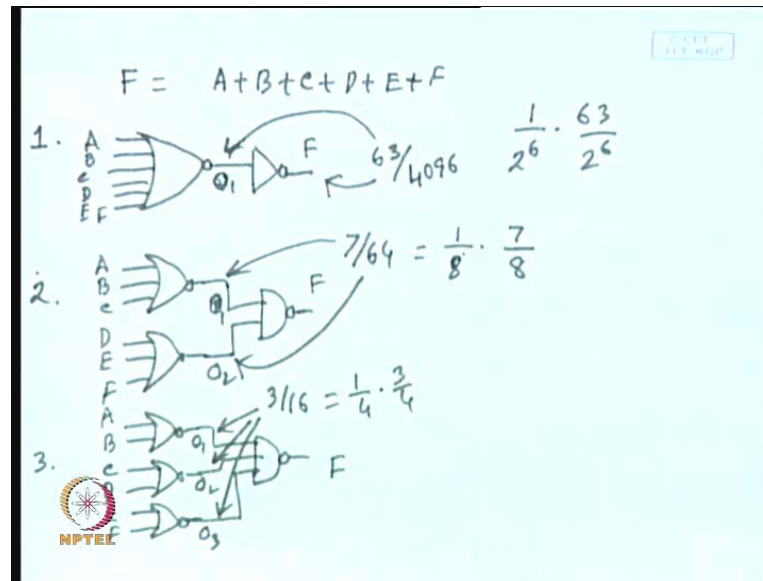 CCET
I.I.T. KGP
F = A+B+C+D+E+F
1. A
B
C
D
E F
O1
F
63/4096
1/2^6 · 63/2^6
2. A
B
C
D
E
F
O1
O2
F
7/64 = 1/8 · 7/8
3. A
B
C
D
F
O1
O2
O3
F
3/16 = 1/4 · 3/4
NPTEL